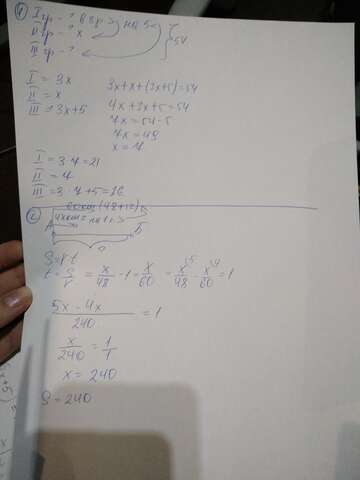 I гр - ? в 3 р > на 5
II гр - ? x
III гр - ? 54
I = 3x
II = x
III = 3x+5
3x+x+(3x+5)=54
7x+3x+5=54
7x=54-5
7x=49
x=7
I = 3·7=21
II = 7
III = 3·7+5=26
60 км (48+12)
A
48 км
на 1 ч >
Б
S=vt
t=S/v = x/48 - 1 = x/60 = x/48 - x/60 = 1
5x-4x/240 = 1
x/240 = 1/1
x = 240
S = 240